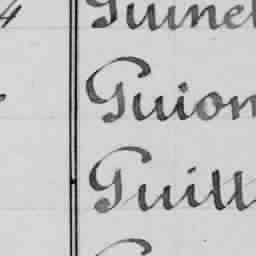 4 Guinel
Guion
Guill